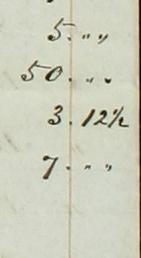 5. " "
50. " "
3. 12½
7. " "